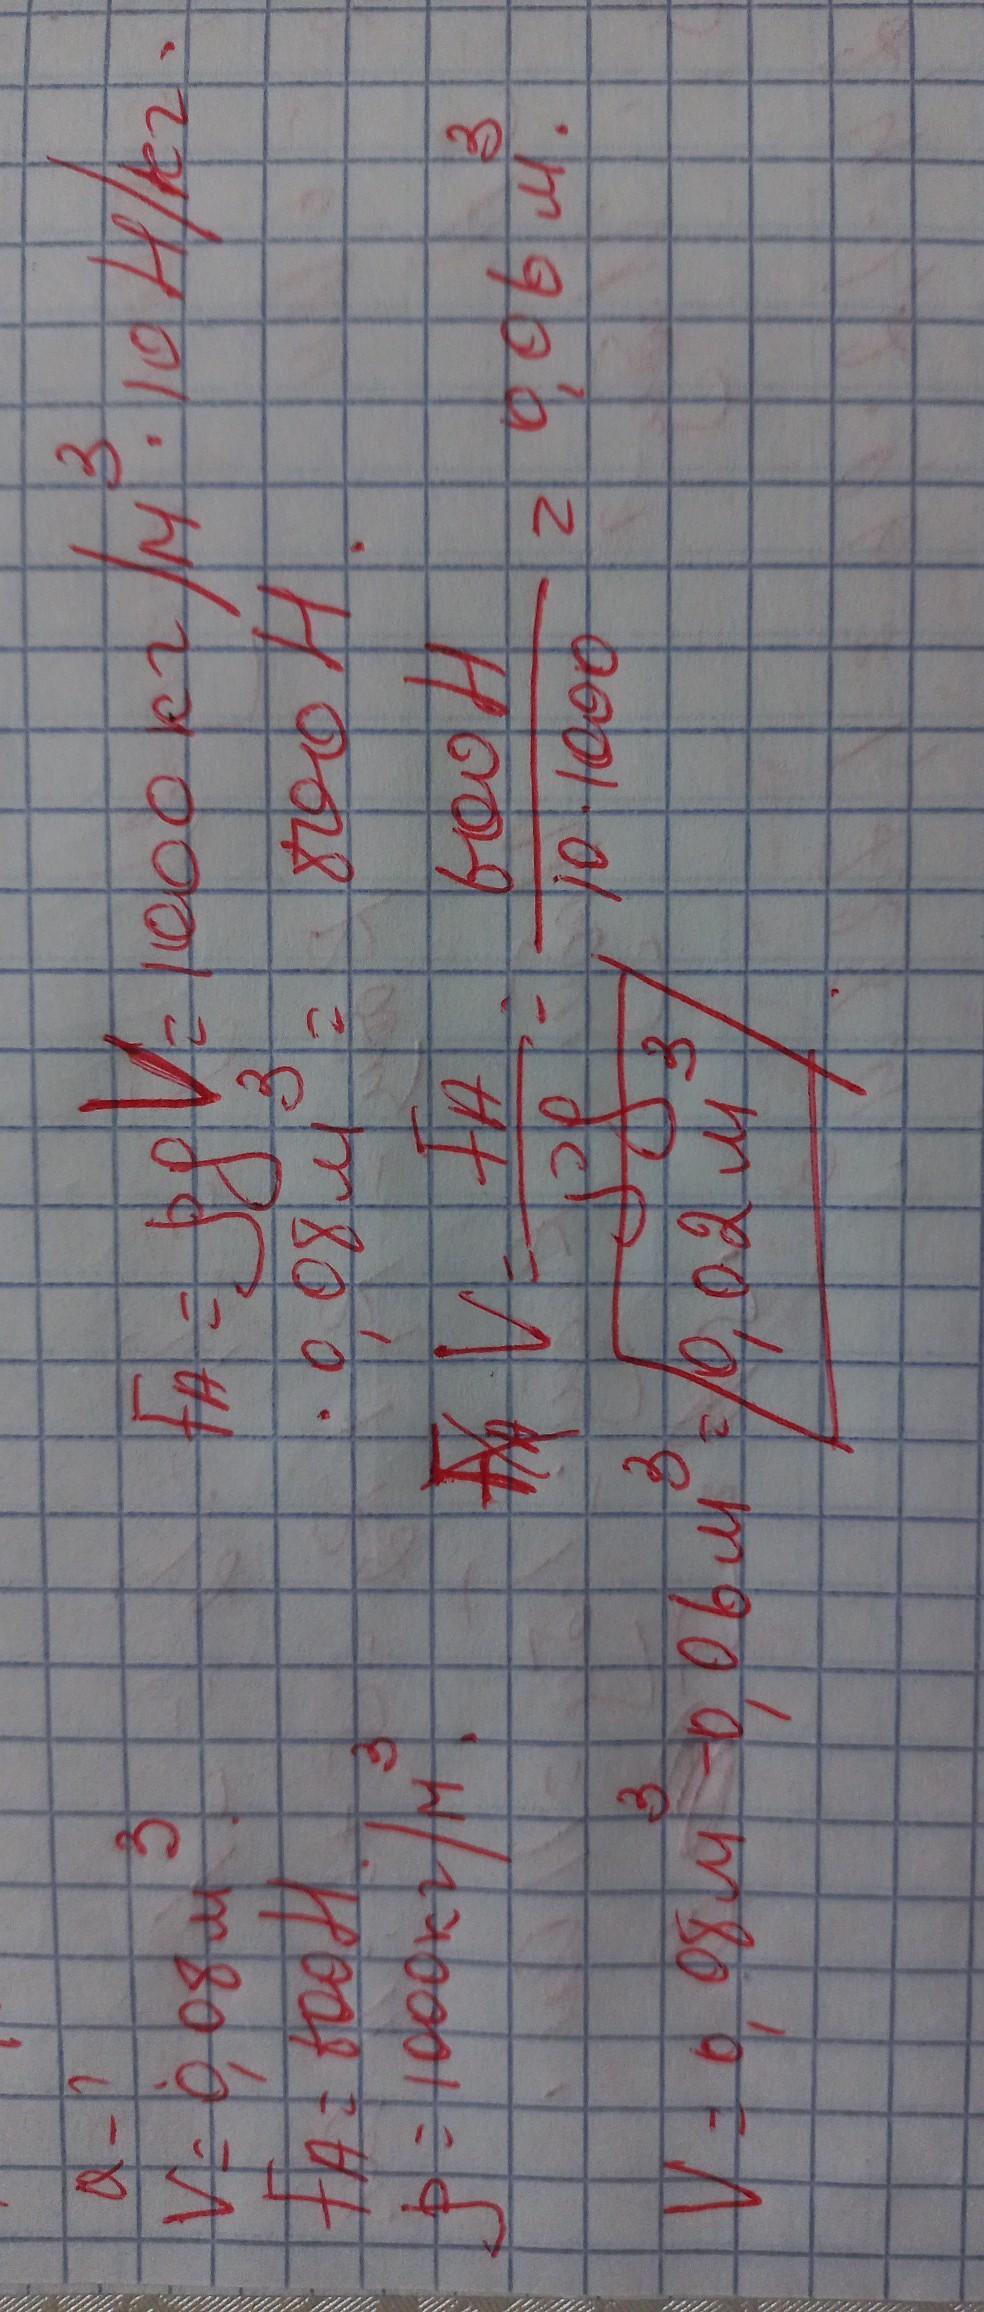 а-?
V=0,08м³
FA=600Н
ρ=1000кг/м³.
FA=ρgV=1000кг/м³·10Н/кг.
·0,08м³=800Н.
V=FA/gρ=600Н/10·1000=0,06м³.
V=0,08м³-0,06м³=0,02м³